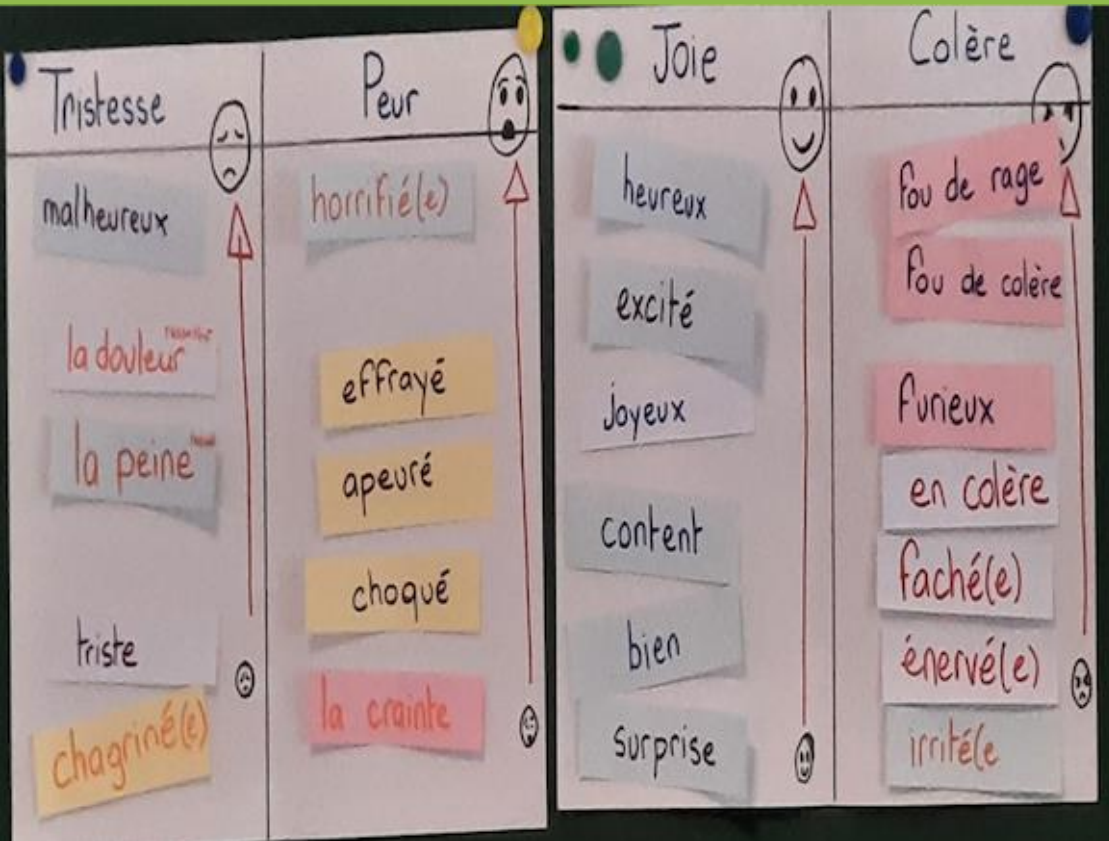 Tristesse
malheureux
la douleur
la peine
triste
chagriné(e)
Peur
horrifié(e)
effrayé
apeuré
choqué
la crainte
Joie
heureux
excité
joyeux
content
bien
surprise
Colère
fou de rage
fou de colère
furieux
en colère
faché(e)
énervé(e)
irrité(e